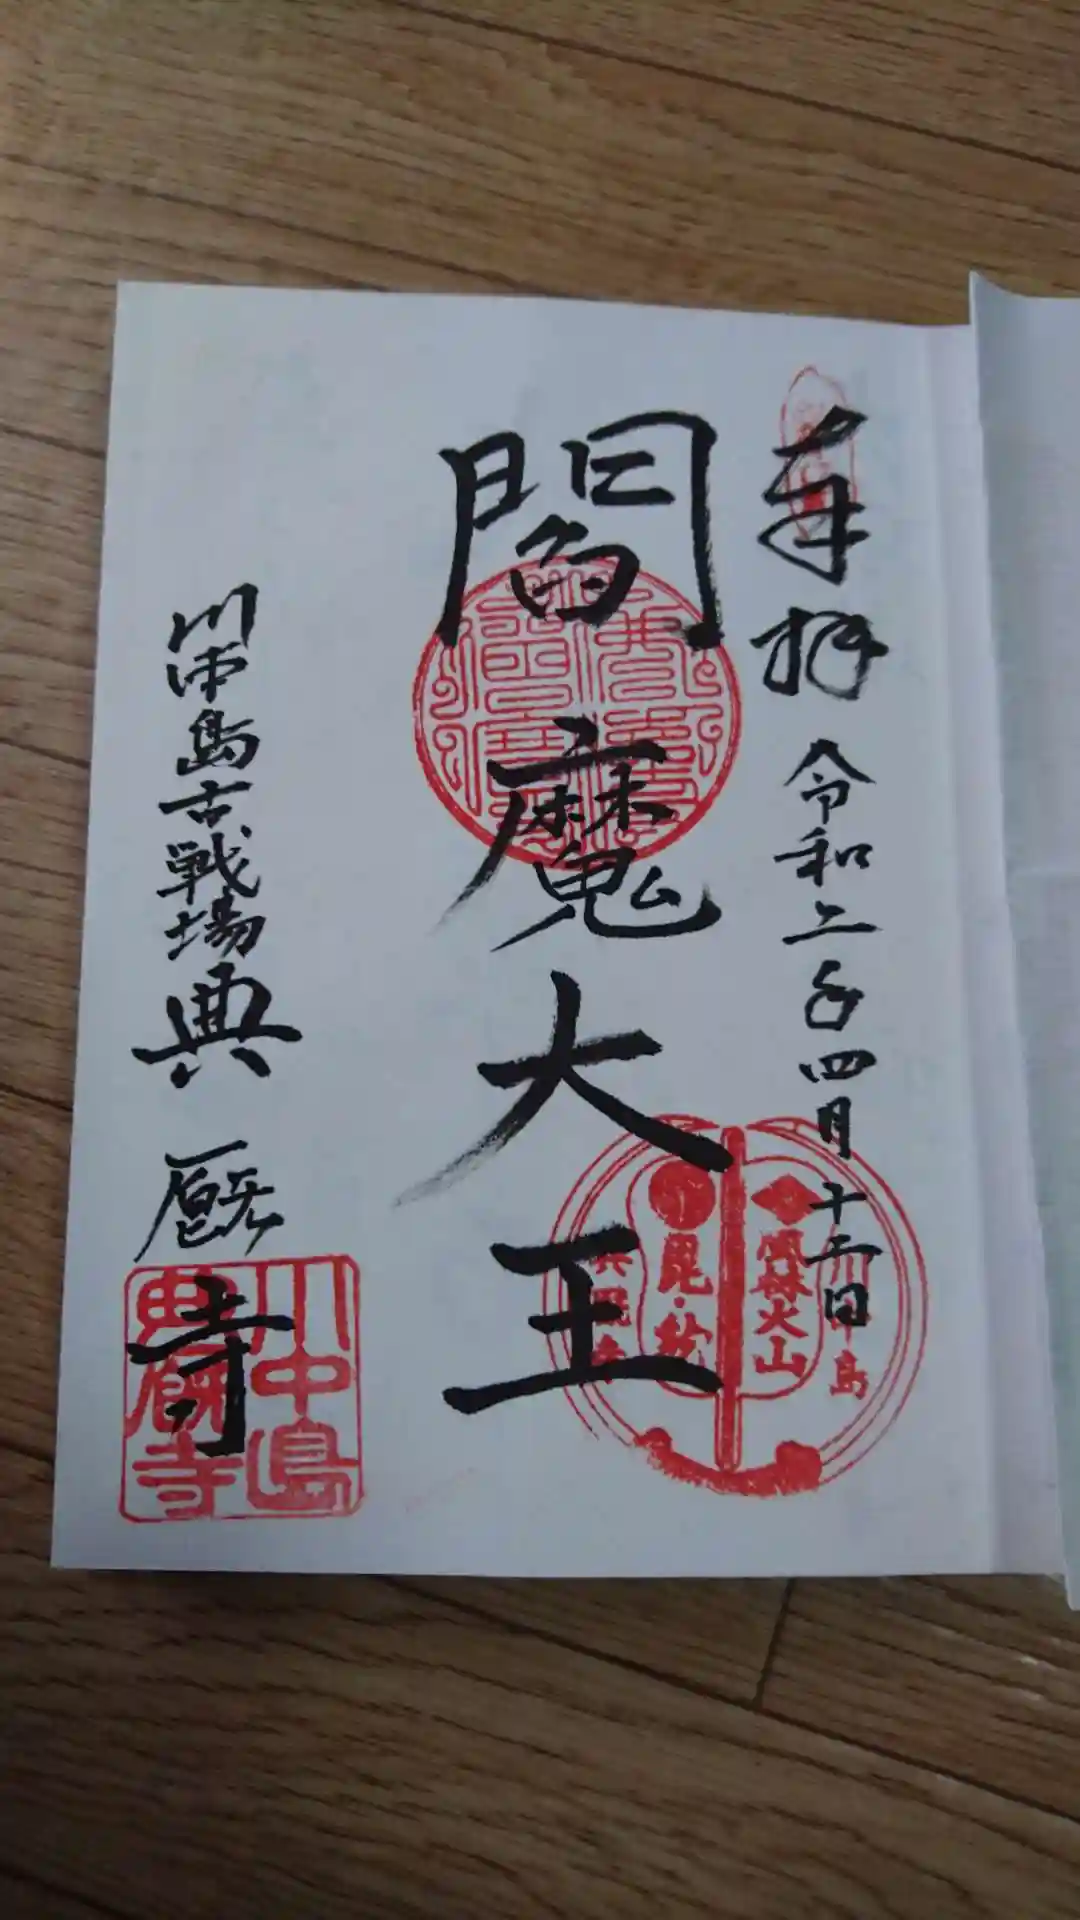 奉拝 令和二年四月十二日
閻魔大王
川中島古戦場典厩寺
風林火山
毘・龍
川中島
典厩寺
川中島
典厩寺